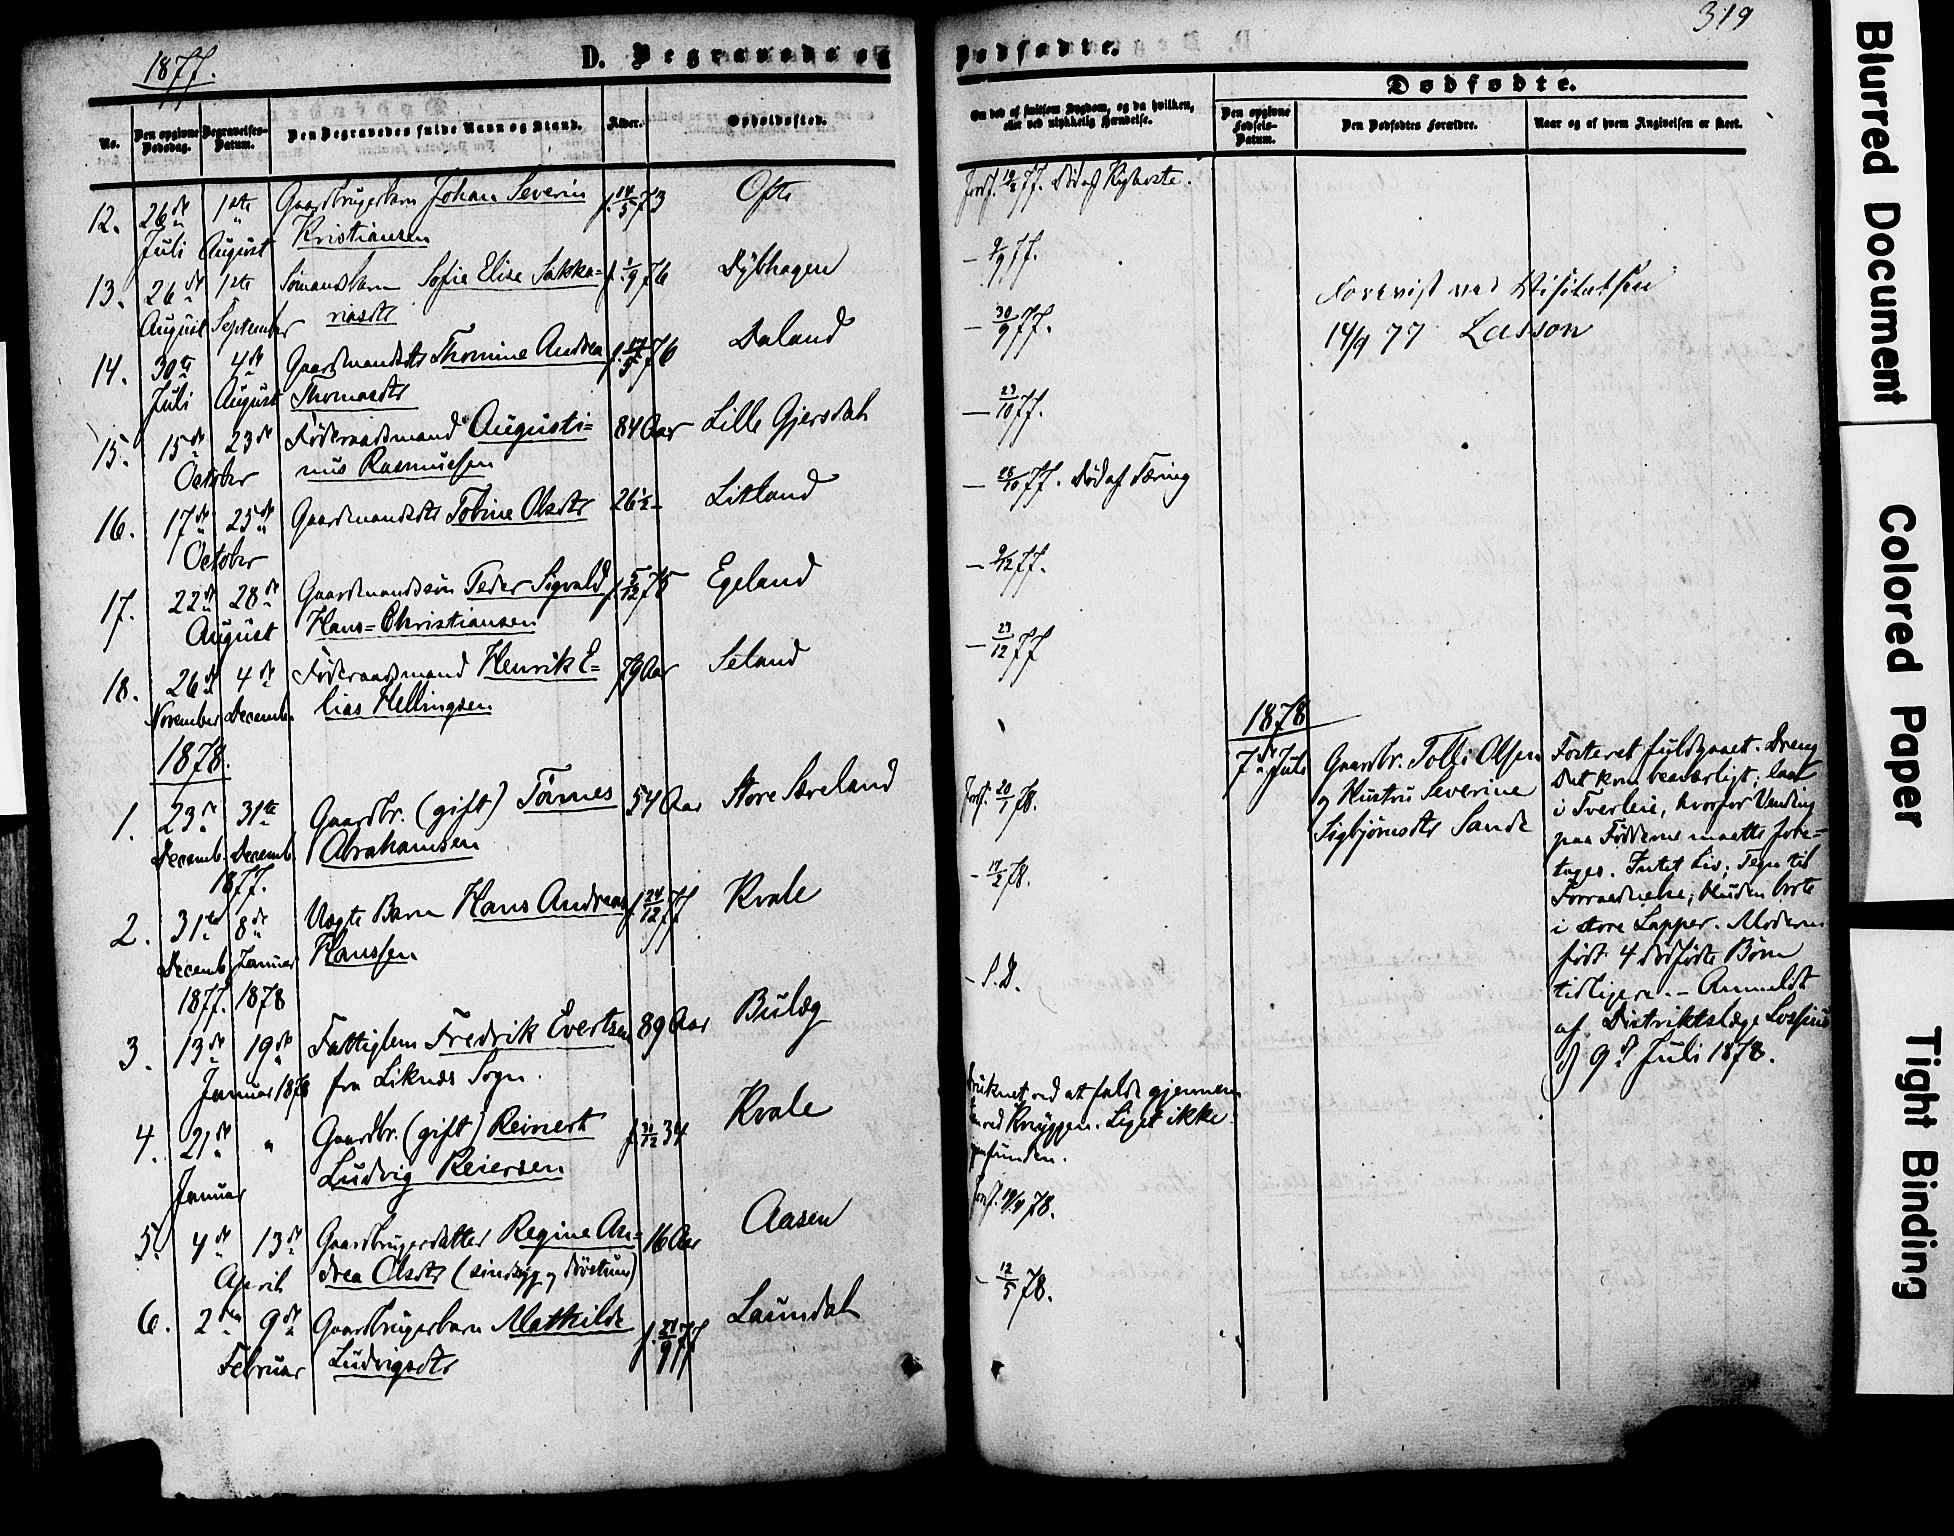 1877.
D. Begravede og
No.
Den opgivne Dødsdag.
Begravelses-Datum.
Den Begravedes fulde Navn og Stand.
Alder.
Opholdssted.
12. 26de 1ste Gaardbrugerbarn Johan Severin f. 14/5 73 Ofte
Juli August Kristiansen
13. 26de 1ste Sømandsbarn Sofie Elise Sakka= f. 1/9 76 Dybhagen
August September riasdtr
14. 30te 4de Gaardmandsdtr Thomine Andrea f. 17/5 76 Daland
Juli August Thomasdtr
15. 15de 23de Føderaadsmand Augusti= 84 Aar Lille Gjersdal
October nus Rasmussen
16. 17de 25de Gaardmandsdtr Tobine Olsdtr 26 1/2 - Litland
October
17. 22de 28de Gaardmandssøn Peder Sigvald f. 5/12 75 Egeland
August Hans=Christiansen
18. 26de 4de Føderaadsmand Henrik E= 79 Aar Seland
November Decemb. lias Hellingsen
1878.
1. 23de 31te Gaardbr. (gift) Tønnes 54 Aar Store Sæveland
Decemb. Decemb. Abrahamsen
1877.
2. 31te 8de Uægte Barn Hans Andreas f. 24/12 77 Kvale
Decemb. Januar Hanssen
1877. 1878
3. 13de 19de Fattiglem Fredrik Evertsen 89 Aar Bulæg
Januar 1878 fra Liknes Sogn.
4. 21de " Gaardbr. (gift) Reinert f. 31/12 34 Kvale
Januar Ludvig Reiersen
5. 4de 13de Gaardbrugerdatter Regine An= 16 Aar Aasen
April drea Olsdtr (sindssyg og døvstum)
6. 2den 9de Gaardbrugerbarn Mathilde f. 21/9 77 Laundal
Februar Ludvigsdtr
319
Dødfødte.
Om død af smitsom Sygdom, og da hvilken,
eller ved ulykkelig Hændelse.
Dødfødte.
Den opgivne Fødsels-Datum.
Den Dødfødtes Forældre.
Naar og af hvem Angivelsen er skeet.
Jordf. 19/8 77. Død af Kighoste.
- 9/9 77.
- 30/9 77.
- 23/10 77.
- 28/10 77. Død af Tæring
- 9/12 77.
- 23/12 77
Forevist ved Visitatsen
14/9 77 Lasson
Jordf. 20/1 78.
- 17/2 78.
- S.D.
Druknet ved at falde gjennem
ved Knyggen. Liget ikke
gjenfunden.
Jordf. 19/4 78.
- 12/5 78.
1878
7de Juli
Gaardbr. Tolli Olsen
og Hustru Severine
Sigbjørnsdtr Sande
Fosteret fuldbaaret. Dreng
Det kom besværligt; laae
i Tverleie, hvorfor Vending
paa Fødderne maatte fore=
tages. Intet Liv; Tegn til
Forraadnelse; Huden borte
i store Lapper. Moderen
født 4 dødfødte Børn
tidligere. - Anmeldt
af Distriktslæge Lossius
d 9de Juli 1878.
Blurred Document
Colored Paper
Tight Binding